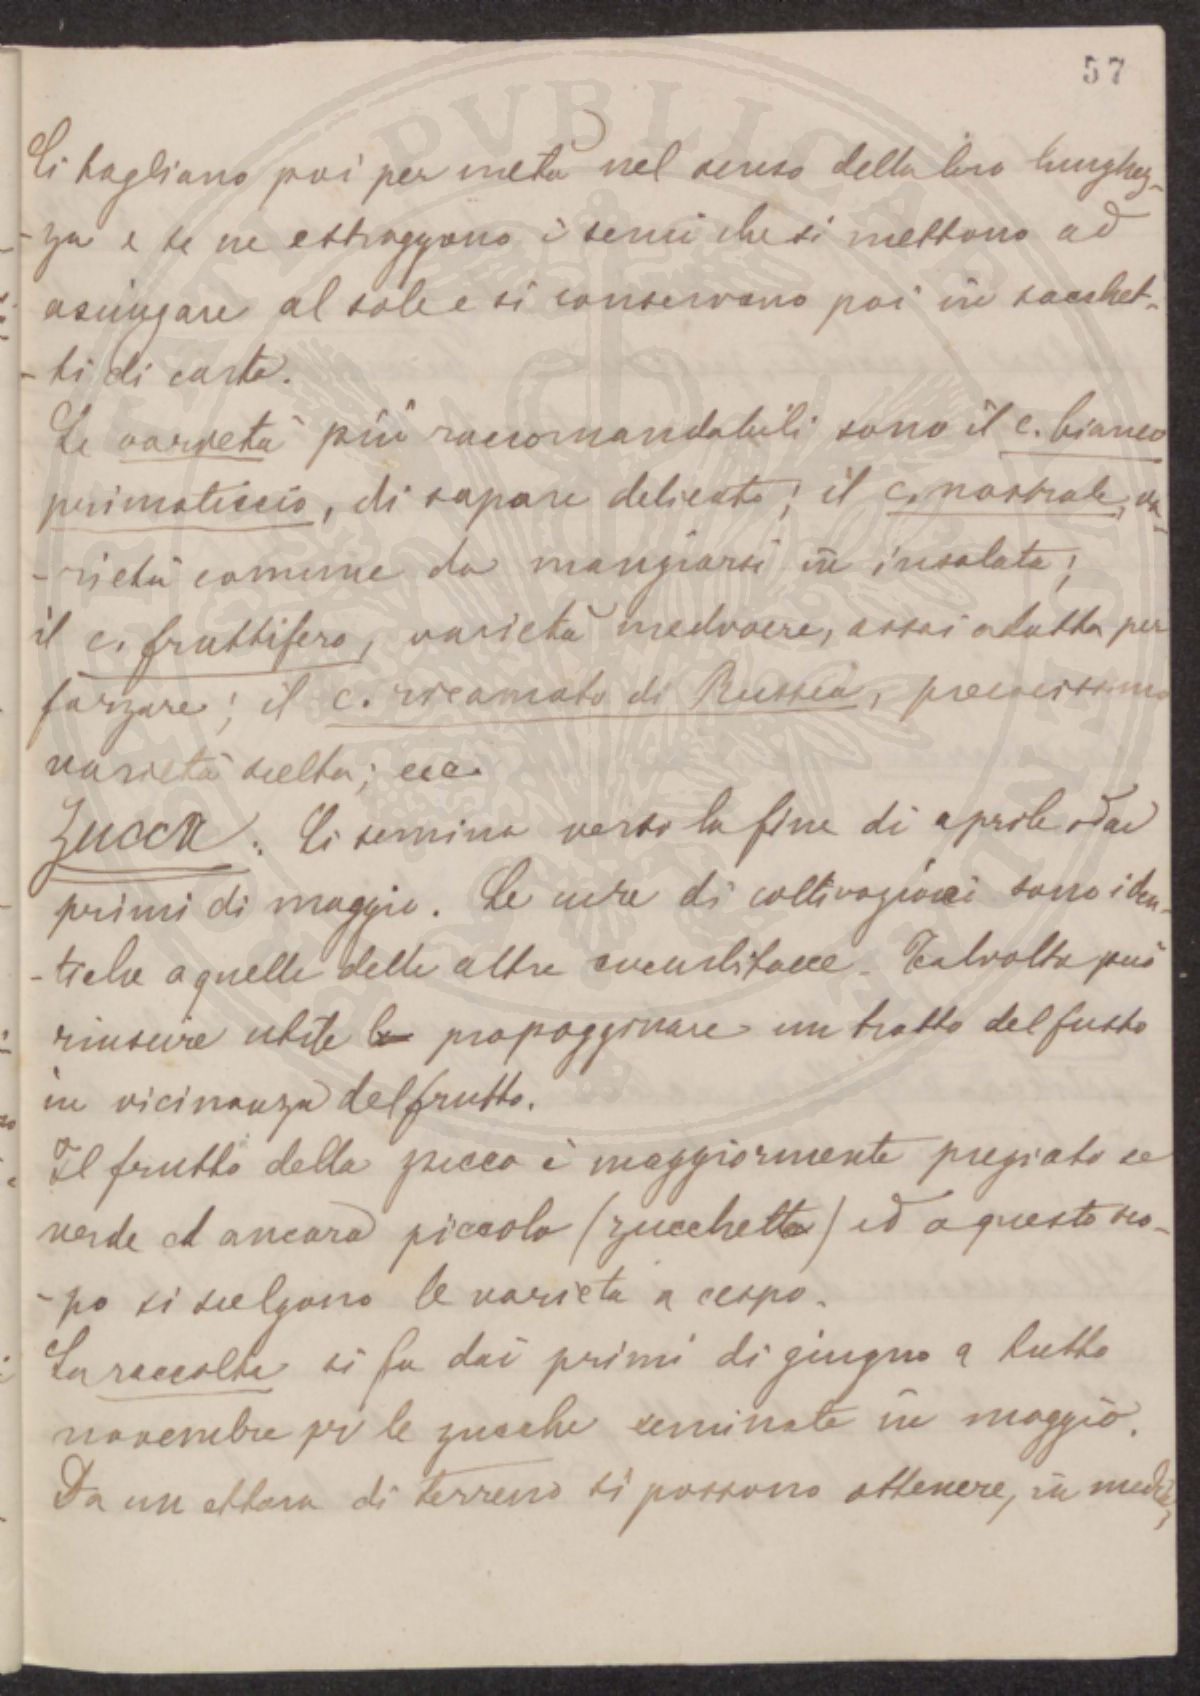 57
Si tagliano poi per metà nel senso della loro lunghez-
-za e se ne estraggono i semi che si mettono ad
asciugare al sole e si conservano poi in sacchet-
-ti di carta.
Le varietà più raccomandabili sono il c. bianco
primaticcio, di sapore delicato; il c. nostrale, va-
-rietà comune da mangiarsi in insalata;
il c. fruttifero, varietà mediocre, assai adatta per
forzare; il c. ricamato di Russia, precocissima
varietà scelta; ecc.
Zucca: Si semina verso la fine di aprile o dai
primi di maggio. Le cure di coltivazioni sono iden-
-tiche a quelle delle altre cucurbitacee. Talvolta può
riuscire utile propagginare un tratto del fusto
in vicinanza del frutto.
Il frutto della zucca è maggiormente pregiato se
verde ed ancora piccolo (zucchetta) ed a questo sco-
-po si scelgono le varietà a cespo.
La raccolta si fa dai primi di giugno a tutto
novembre per le zucche seminate in maggio.
Da un ettara di terreno si possono ottenere, in media,
PVBLICAE